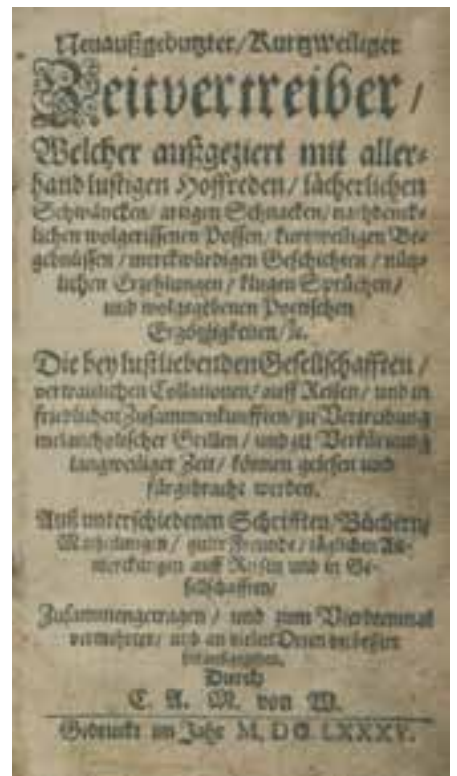 Neuaußgebutzter/Kurtzweiliger
Zeitvertreiber/
Welcher außgeziert mit aller-
hand lustigen Hoffreden/lächerlichen
Schwäncken/artigen Schnacken/nachdenck-
lichen wolgerissenen Possen/kurtzweiligen Be-
gebnüssen/merckwürdigen Geschichten/nütz-
lichen Erzehlungen/klugen Sprüchen/
und wolgegebenen Poetischen
Ergötzligkeiten/ꝛc.
Die bey lustliebenden Gesellschafften/
vertraulichen Collationen/auff Reisen/und in
friedlichen Zusammenkunfften/zu Vertreibung
melancholischer Grillen/und zu Verkürtzung
langweiliger Zeit/können gelesen und
fürgebracht werden.
Auß unterschiedenen Schrifften/Büchern/
Mittheilungen/guter Freunde/täglichen An-
merckungen auff Reisen und in Ge-
sellschafften/
Zusammengetragen/und zum Vierdtenmal
vermehrter/und an vielen Orten verbessert
herausgegeben.
Durch
C. A. M. von W.
Gedruckt im Jahr M. DC. LXXXV.